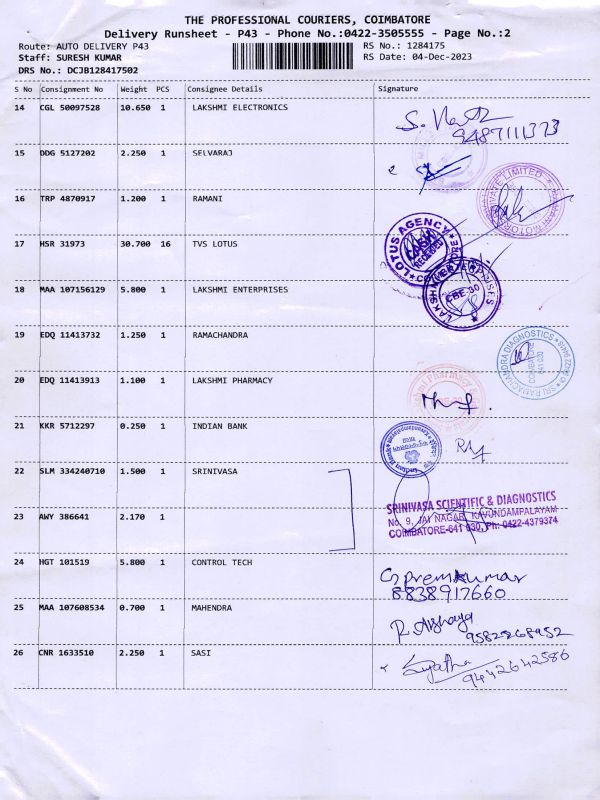 THE PROFESSIONAL COURIERS, COIMBATORE
Delivery Runsheet - P43 - Phone No.:0422-3505555 - Page No.:2
Route: AUTO DELIVERY P43 RS No.: 1284175
Staff: SURESH KUMAR RS Date: 04-Dec-2023
DRS No.: DCJB128417502
S No Consignment No Weight PCS Consignee Details Signature
14 CGL 50097528 10.650 1 LAKSHMI ELECTRONICS
9487111373
15 DDG 5127202 2.250 1 SELVARAJ
16 TRP 4870917 1.200 1 RAMANI
PRIVATE LIMITED
17 HSR 31973 30.700 16 TVS LOTUS
LOTUS AGENCY
CASH
RECEIVED
18 MAA 107156129 5.800 1 LAKSHMI ENTERPRISES
CBE-30
19 EDQ 11413732 1.250 1 RAMACHANDRA
SRI RAMACHANDRA DIAGNOSTICS
COIMBATORE
20 EDQ 11413913 1.100 1 LAKSHMI PHARMACY
21 KKR 5712297 0.250 1 INDIAN BANK
22 SLM 334240710 1.500 1 SRINIVASA
SRINIVASA SCIENTIFIC & DIAGNOSTICS
No. 9, JAI NAGAR, KAVUNDAMPALAYAM
COIMBATORE-641 030, Ph: 0422-4379374
23 AWY 386641 2.170 1
24 HGT 101519 5.800 1 CONTROL TECH
G premkumar
8838917660
25 MAA 107608534 0.700 1 MAHENDRA
R. Akshaya
9582268952
26 CNR 1633510 2.250 1 SASI
9442642586